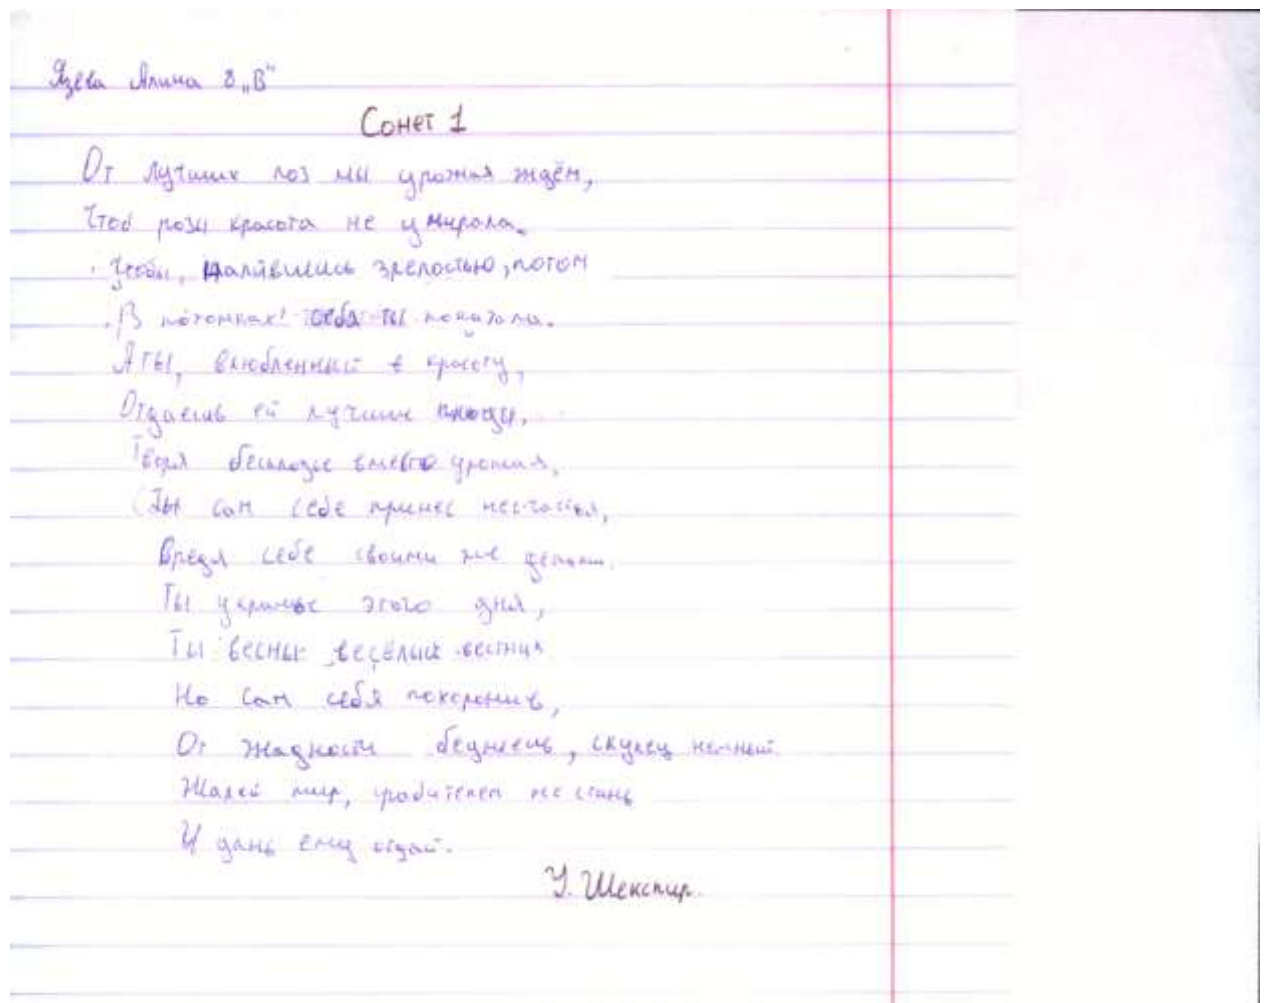 Язева Алина 8 „В"
Сонет 1
От лучших лоз мы урожая ждём,
Чтоб розы красота не умирала.
Чтобы, налившись зрелостью, потом
В потомках себя ты показала.
А ты, влюбленный в красоту,
Отдаешь ей лучшие плоды,
Творя бесплодье вместо урожая,
Ты сам себе принес несчастья,
Вредя себе своими же делами.
Ты украшье этого дня,
Ты весны весёлый вестник
Но сам себя похоронив,
От жадности беднеешь, скупец
Жалей мир, грабителем не стань
И дань ему отдай.
У. Шекспир.